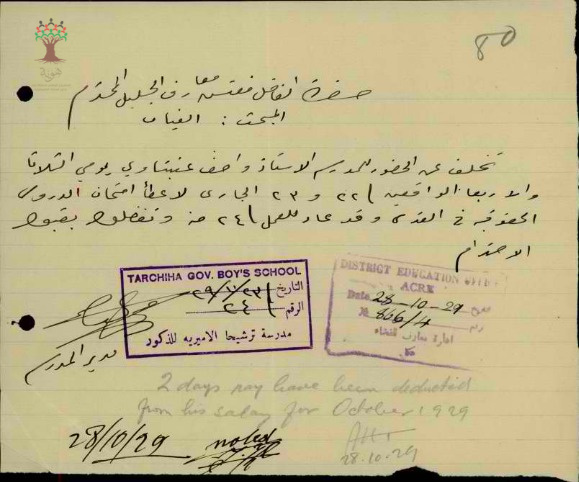 80
حضرة الفاضل مفتش معارف الجليل المحترم
المبحث : الغياب
تخلف عن الحضور للمدرسة الاستاذ واصف عنبتاوي يومي الثلاثا
والاربعا الواقعين ٢٢ و ٢٣ الجاري لاعطأ امتحان الدروس
الحقوقيه في القدس وقد عاد للعمل ٢٤ منه وتفضلوا بقبول
الاحترام
TARCHIHA GOV. BOY'S SCHOOL
التاريخ
الرقم ٢٤
مدرسة ترشيحا الاميريه للذكور
مدير المدرسة
DISTRICT EDUCATION OFFICE
ACRE
Date 28-10-29
№ 866/4
2 days pay have been deducted
from his salary for October 1929
28.10.29
28/10/29 noted